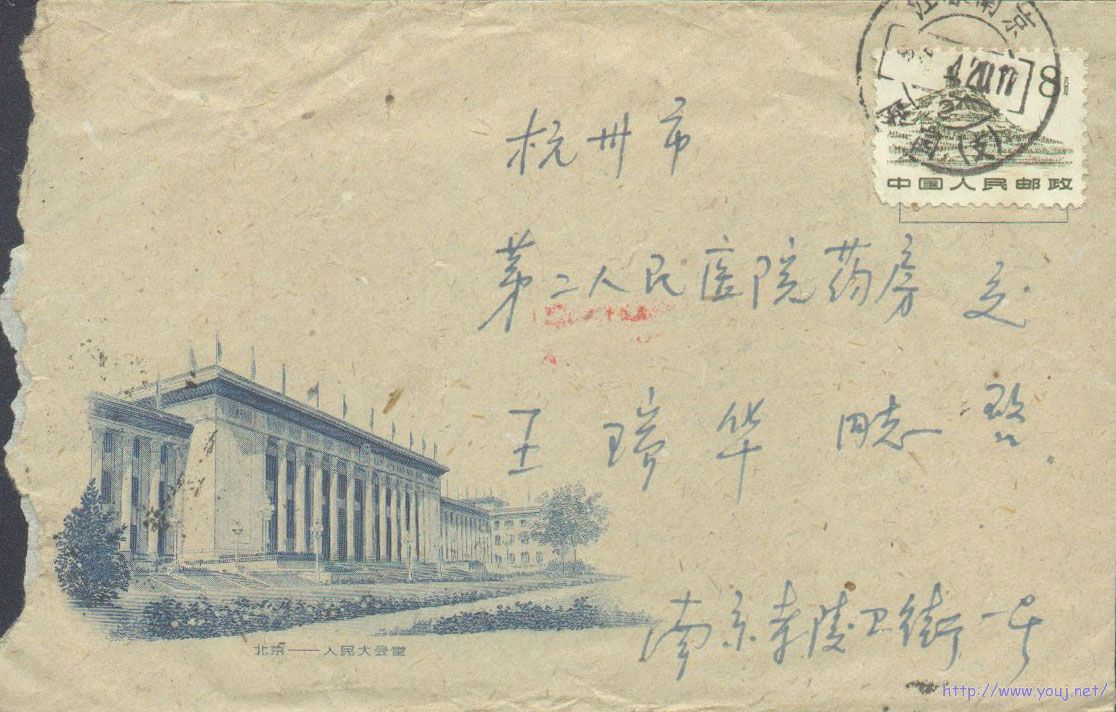 江苏南京
4.20.11
8
中国人民邮政
杭州市
第二人民医院药房 交
王瑞华 同志 启
北京——人民大会堂
南京孝陵卫街一号
http://www.youj.net/